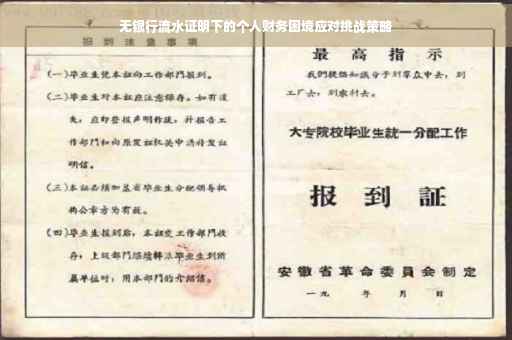 无银行流水证明下的个人财务困境应对挑战策略
报到注意事项
(一)毕业生凭本证向工作部门报到。
(二)毕业生对本证应注意保存。如有遗
失,应即登报声明作废,并报告工
作部门和向原发证机关申请补发证
明信。
(三)本证必须加盖省毕业生分配领导机
构公章方为有效。
(四)毕业生报到后,本证交工作部门收
存;上级部门继续转派毕业生到所
属单位时,用本部门的介绍信。
最高指示
我们提倡知识分子到群众中去,到
工厂去,到农村去。
大专院校毕业生统一分配工作
报到証
安徽省革命委員会制定
一九 年 月 日